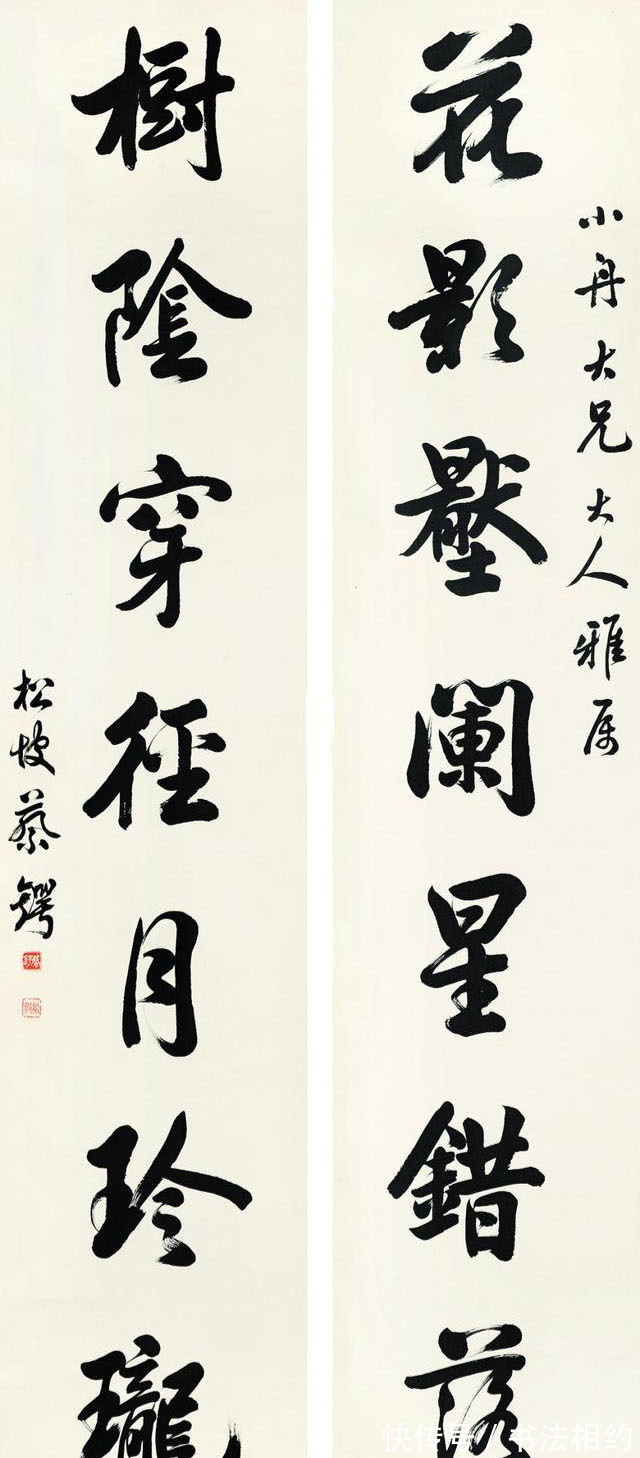 小舟大兄大人雅属
花影壓闌星錯落
樹陰穿徑月玲瓏
松坡蔡鍔
快传号 / 书法相约